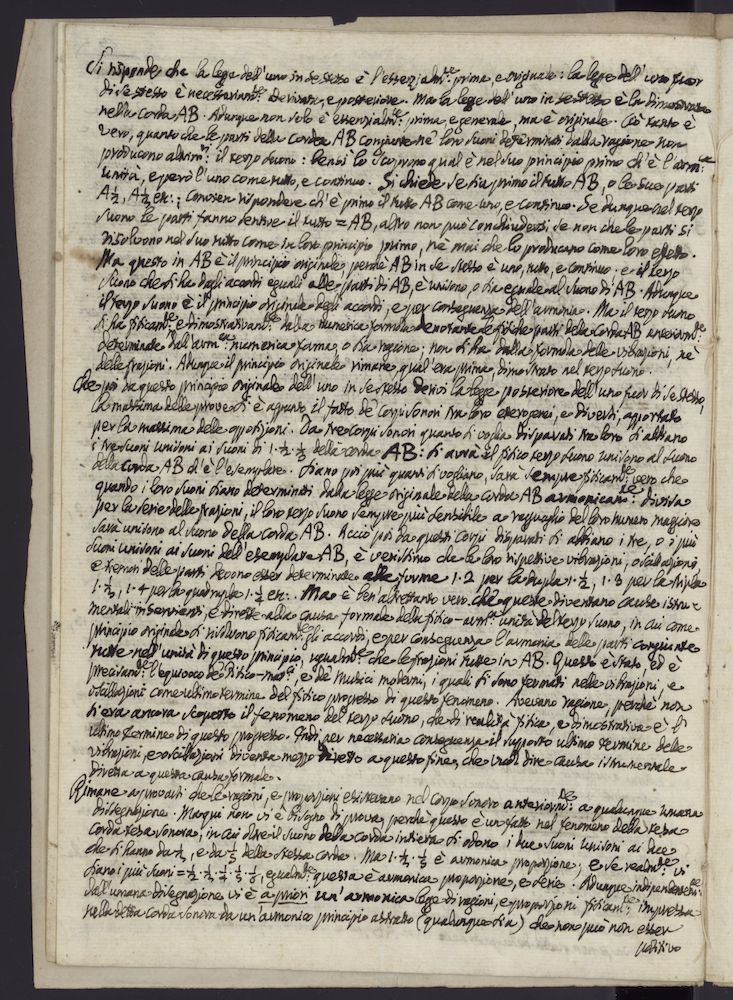 Si risponde, che la legge dell'uno in se stesso è l'essenzialm.te prima, e originale: la legge dell'uno fuor
di se stesso è necessariam.te derivata, e posteriore. Ma la legge dell'uno in se stesso è la dimostrata
nella corda AB. Adunque non solo è essenzialm.te prima, e generale, ma è originale. Ciò tanto è
vero, quanto che le parti della corda AB congiunte ne' loro suoni determinati dalla ragione non
producono altrim.ti il terzo suono: bensì lo scoprono qual è nel suo principio primo ch'è l'arm.ca
unità, e però l'uno come tutto, e continuo. Si chiede se sia primo il tutto AB, o le sue parti
A½, A⅓ etc.; Convien rispondere ch'è primo il tutto AB come uno, e continuo. Se dunque nel terzo
suono le parti fanno sentire il tutto = AB, altro non può conchiudersi, se non che le parti si
risolvono nel suo tutto come in loro principio primo, né mai che lo producano come loro effetto.
Ma questo in AB è il principio originale, perché AB in se stesso è uno, tutto, e continuo, e il terzo
suono che si ha dagli accordi eguali alle parti di AB, è unisono, o sia eguale al suono di AB. Adunque
il terzo suono è il principio originale degli accordi, e per conseguenza dell'armonia. Ma il terzo suono
si ha fisicam.te, e dimostrativam.te dalla numerica formula denotante le fisiche parti della corda AB anteriorm.te
determinate dall'arm.ca numerica forma, o sia ragione; non si ha dalla formula delle vibrazioni, né
delle frazioni. Adunque il principio originale rimane qual'era prima dimostrato nel terzo suono.
Che poi da questo principio originale dell'uno in se stesso derivi la legge posteriore dell'uno fuor di se stesso,
la massima delle prove si è appunto il fatto de' corpi sonori tra loro eterogenei, e diversi, apportato
per la massima delle opposizioni. Da tre corpi sonori quanto si voglia disparati tra loro si abbiano
i tre suoni unisoni ai suoni di 1. ½. ⅓ della corda AB: si avrà il fisico terzo suono unisono al suono
della corda AB ch'è l'esemplare. Siano poi più quanti si vogliano, sarà sempre fisicam.te vero che
quando i loro suoni siano determinati dalla legge originale della corda AB armonicam.te divisa
per la serie delle frazioni, il loro terzo suono sempre più sensibile a ragguaglio del loro numero maggiore
sarà unisono al suono della corda AB. Acciò poi da questi corpi disparati si abbiano i tre, o i più
suoni unisoni ai suoni dell'esemplare AB, è verissimo che le loro rispettive vibrazioni, o oscillazioni,
e tremori delle parti devono esser determinate alle forme 1.2 per la dupla 1.½, 1.3 per la tripla
1.⅓, 1.4 per la quadrupla 1.¼ etc. Ma è ben altrettanto vero che queste diventano cause istru=
mentali inservienti, e dirette alla causa formale della fisico-arm.ca unità del terzo suono, in cui come
principio originale si risolvono fisicam.te gli accordi, e per conseguenza l'armonia delle parti congiunte
tutte nell'unità di questo principio, ugualm.te che le frazioni tutte in AB. Questo è stato, ed è
precisam.te l'equivoco de' Fisico-mat.ci, e de' Musici moderni, i quali si sono fermati nelle vibrazioni, e
oscillazioni come ultimo termine del fisico progresso di questo fenomeno. Avevano ragione, perché non
si era ancora scoperto il fenomeno del terzo suono, che di realità fisica, e dimostrativa è l'
ultimo termine di questo progresso. Indi per necessaria conseguenza il supposto ultimo termine delle
vibrazioni, e oscillazioni diventa mezzo diretto a questo fine, che vuol dire causa istrumentale
diretta a questa causa formale.
Rimane a provarsi che le ragioni, e proporzioni esistevano nel corpo sonoro anteriorm.te a qualunque umana
disegnazione. Ma qui non vi è bisogno di prova, perché questo è un fatto nel fenomeno della stessa
corda tesa sonora, in cui oltre il suono della corda intiera si odono i due suoni unisoni ai due
che si hanno da ⅓, e da ⅕ della stessa corda. Ma 1.⅓.⅕ è armonica proporzione; e se realm.te vi
siano i più suoni = ½.⅓.¼.⅕.⅙, egualm.te questa è armonica proporzione, e serie. Adunque indipendentem.te
dall'umana disegnazione vi è a priori un'armonica legge di ragioni, e proporzioni fisicam.te impressa
nella detta corda sonora da un'armonico principio astratto (qualunque sia) che non può non esser
positivo